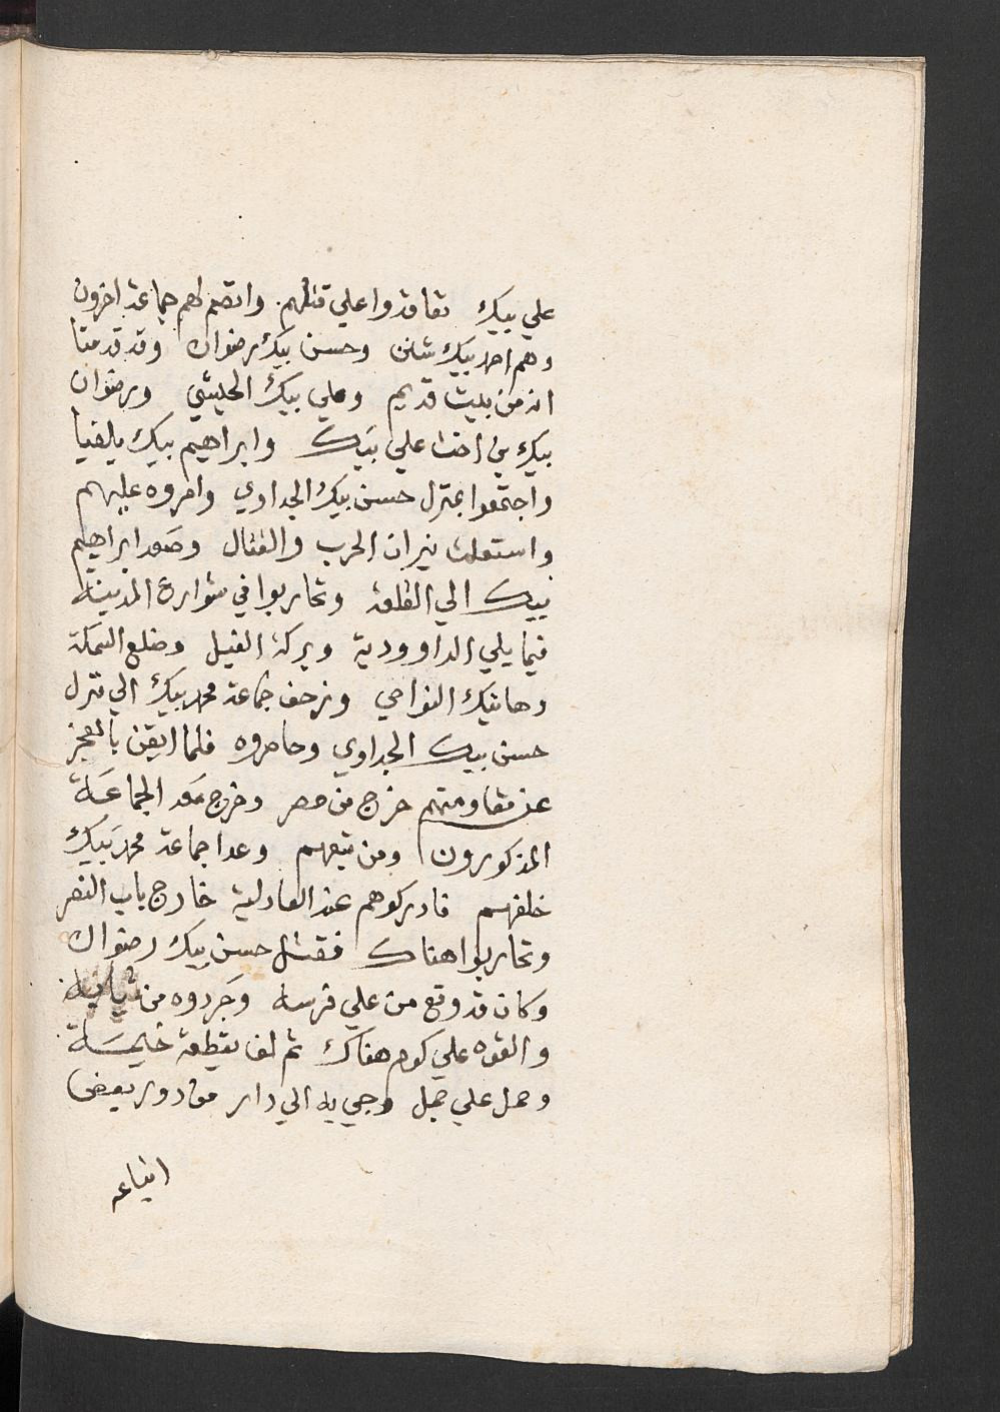 علي بيك تعاقدوا علي قتلهم وانضم لهم جماعة اخرون
وهم احمد بيك شنن وحسن بيك رضوان وقد قدمنا
انه من بيت قديم وعلي بيك الحبشي ورضوان
بيك بن اخت علي بيك وابراهيم بيك بلفيا
واجتمعوا بمنزل حسن بيك الجداوي وامروه عليهم
واستعلت نيران الحرب والقتال وصعد ابراهيم
بيك الي القلعة وتحاربوا في شوارع المدينة
فيما يلي الداوودية وبركة الفيل وضلع السمكة
وهاتيك النواحي وزحف جماعة محمد بيك الي منزل
حسن بيك الجداوي وحاصروه فلما ايقن بالعجز
عن مقاومتهم خرج من مصر وخرج معه الجماعة
المذكورون ومن تبعهم وعدا جماعة محمد بيك
خلفهم فادركوهم عند العادلية خارج باب النصر
وتحاربوا هناك فقتل حسن بيك رضوان
وكان قد وقع من علي فرسه وجردوه من ثيابه
والقوه علي كوم هناك ثم لف بقطعة خيمة
وحمل علي جمل وجي به الي دار من دور بعض
اتباعه